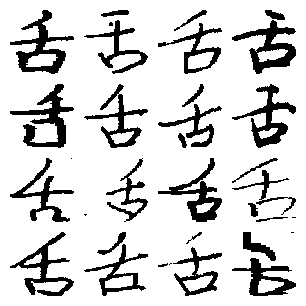 舌舌舌舌
舌舌舌舌
舌舌舌舌
舌舌舌舌